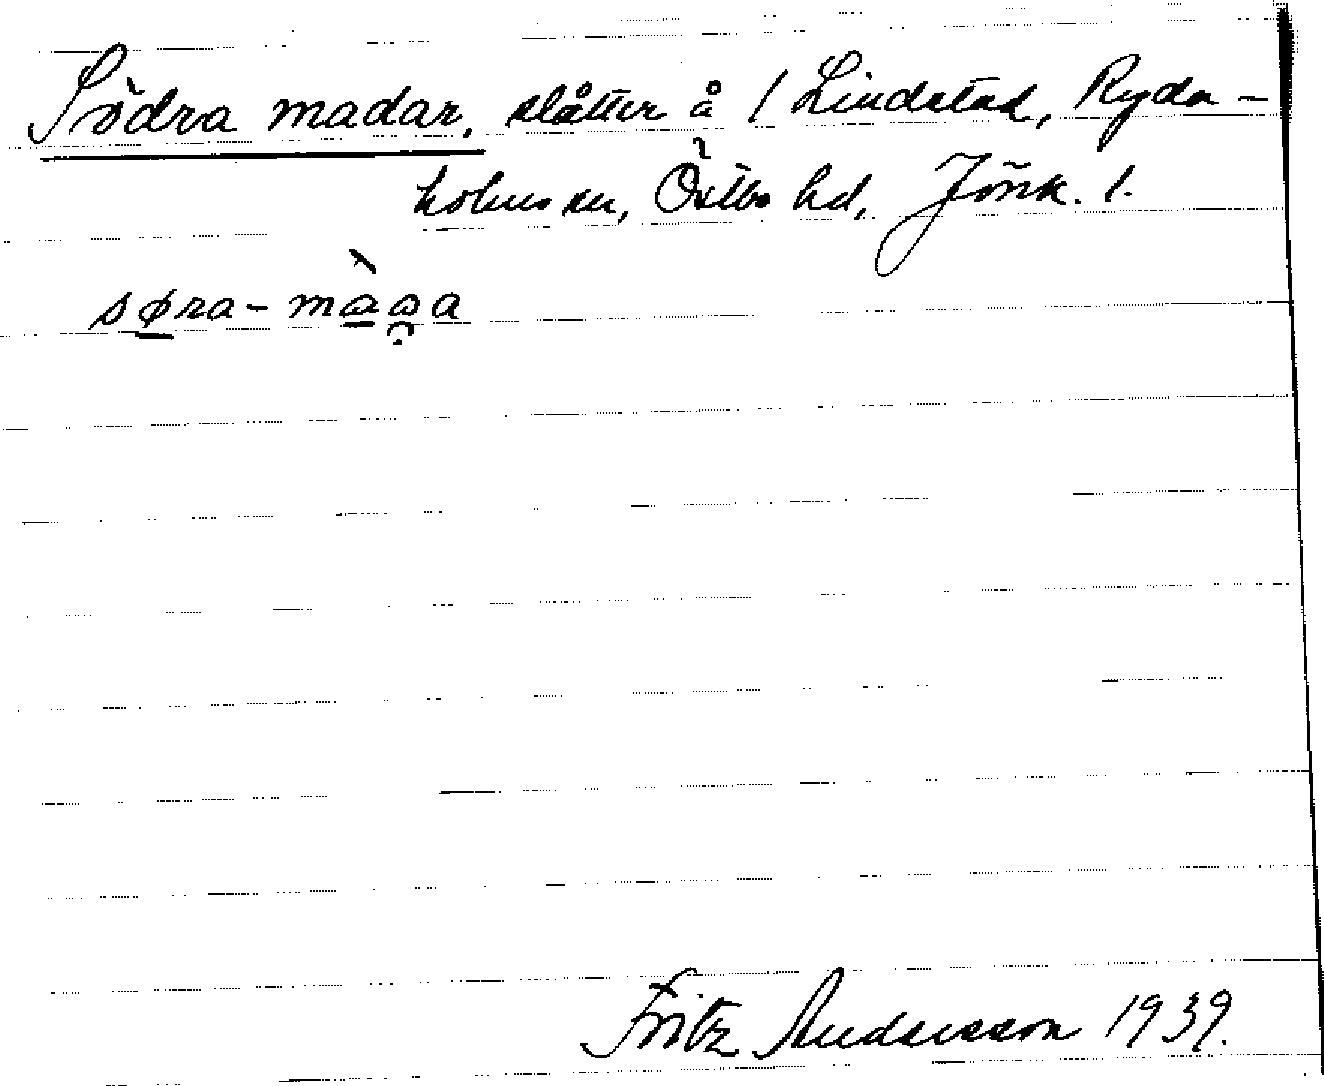 Södra madar, slåtter å / Lindstad, Ryda-
holms sn, Östbo hd, Jönk. l.
søra-màaa
Fritz Andersson 1939.